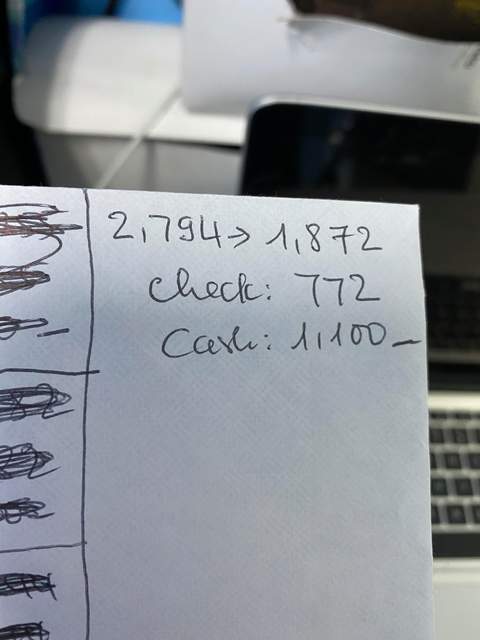 2,794→ 1,872
check: 772
Cash: 1,100 –